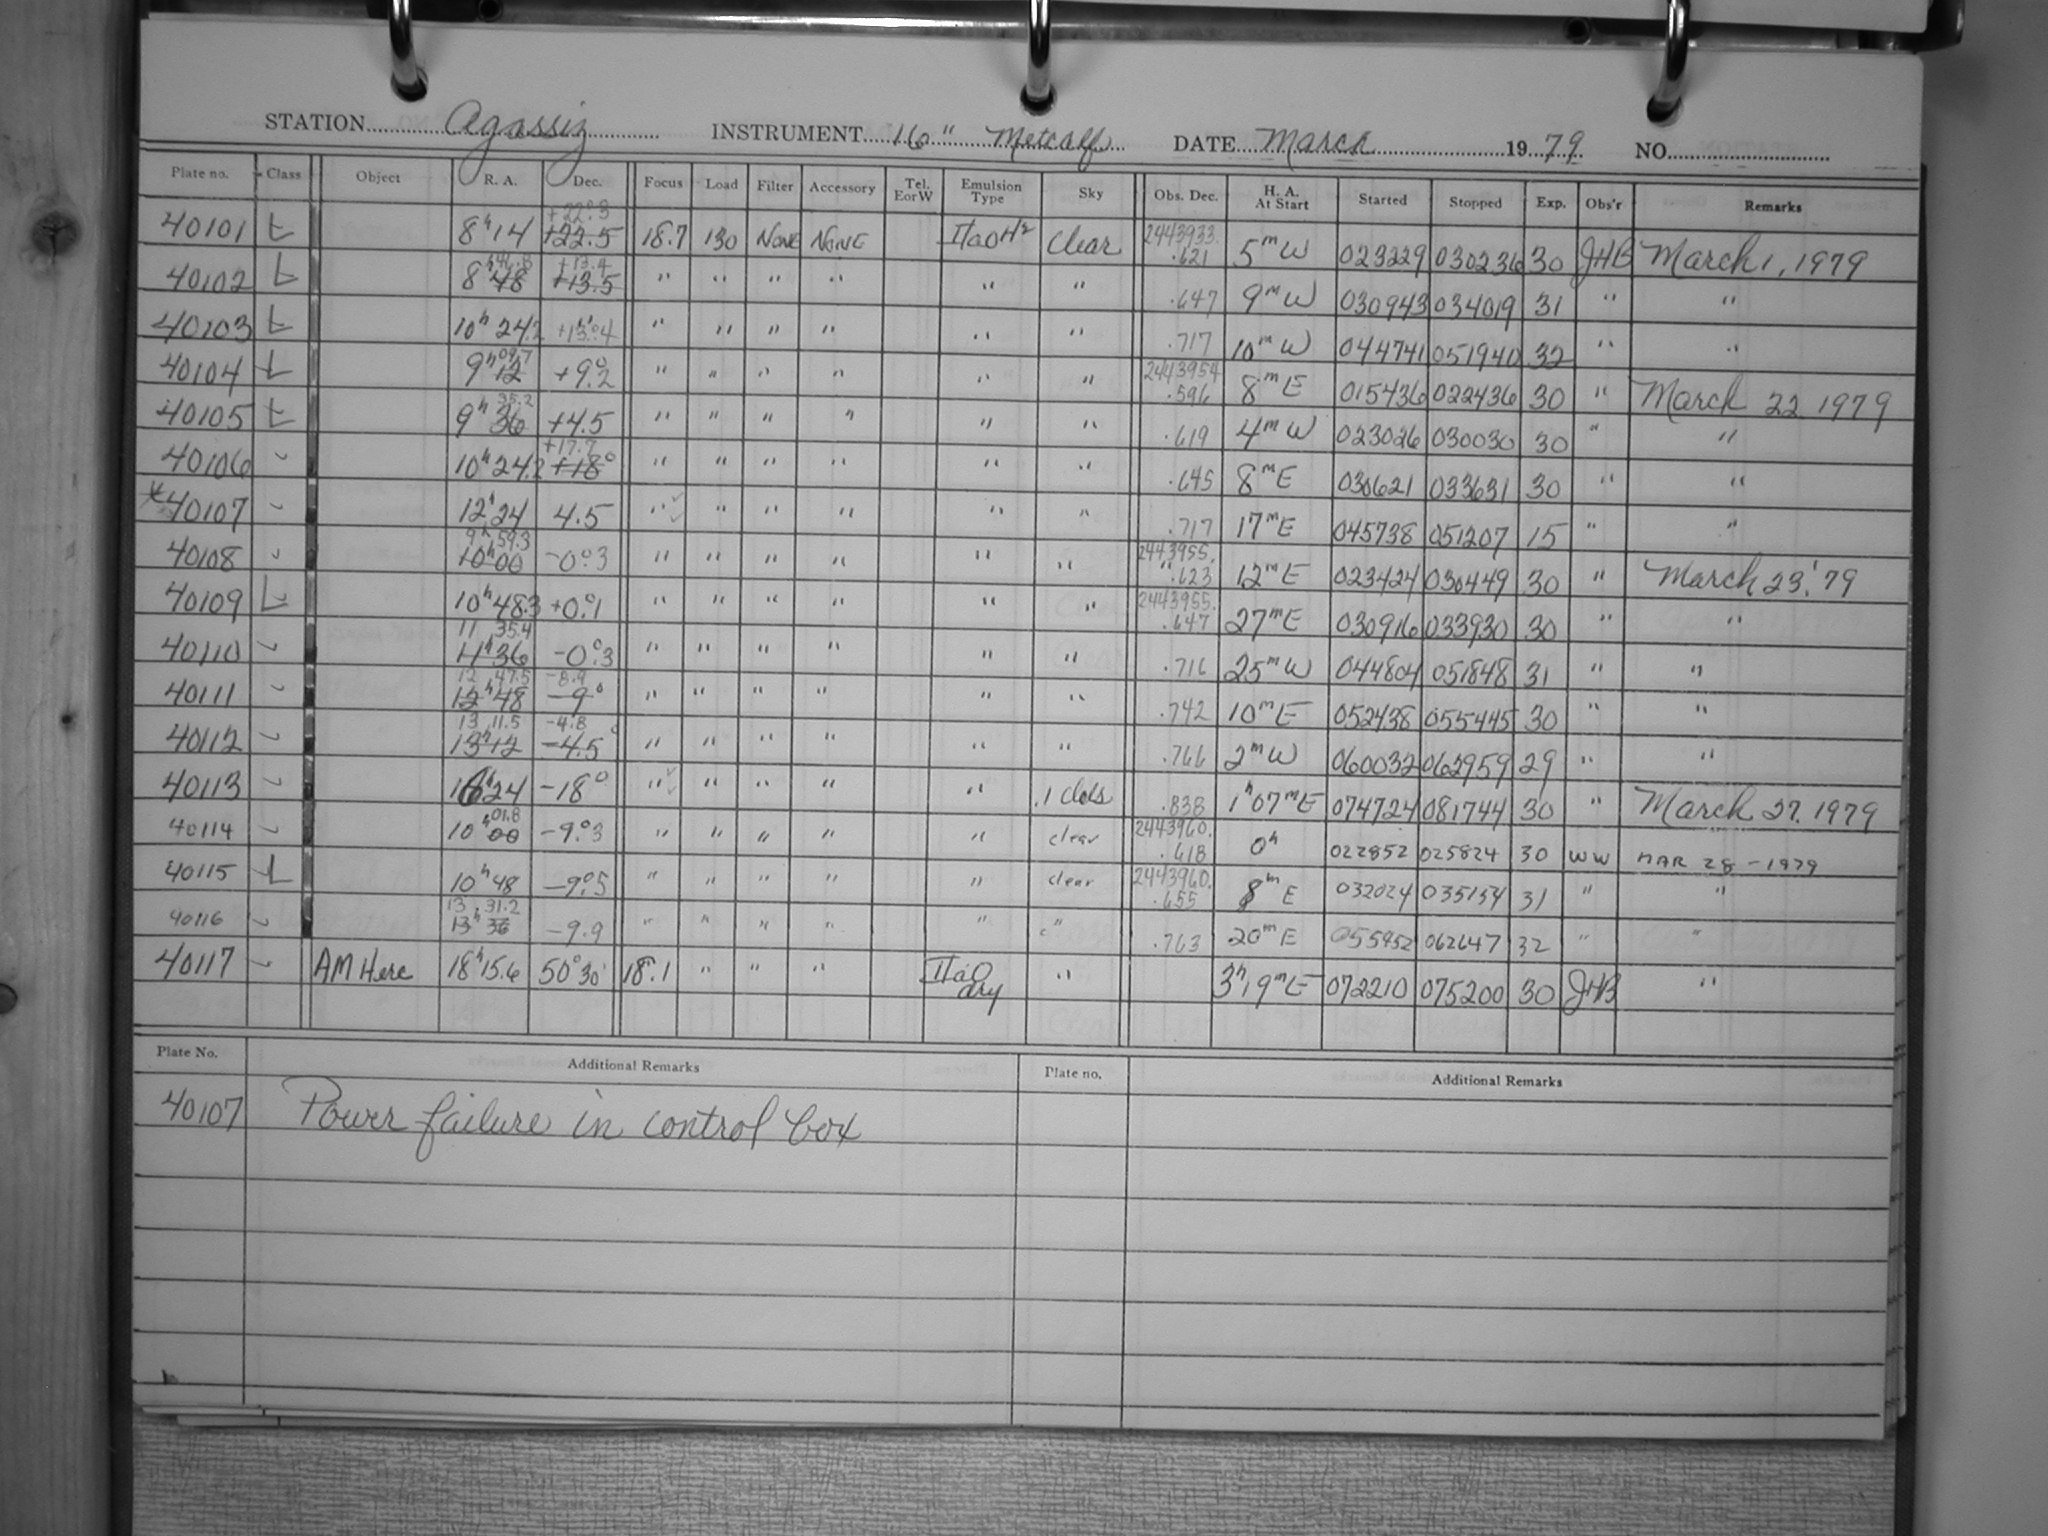 STATION Agassiz INSTRUMENT 16" Metcalf DATE March 1979 NO.
Plate no. Class Object R. A. Dec. Focus Load Filter Accessory Tel. E or W Emulsion Type Sky Obs. Dec. H. A. At Start Started Stopped Exp. Obs'r Remarks
40101 L 8h14 +22°.3 +22.5 18.7 130 None None IIaOH2 Clear 2443933. .621 5mW 023229 030236 30 JHB March 1, 1979
40102 L 8h48 46.8 +13.4 +13.5 " " " " " " .647 9mW 030943 034019 31 " "
40103 L 10h24.2 +13.°4 " " " " " " .717 10mW 044741 051940 32 " "
40104 L 9h12 09.7 +9°.2 " " " " " " 2443954 .596 8mE 015436 022436 30 " March 22 1979
40105 L 9h36 35.2 +4.5 " " " " " " .619 4mW 023026 030030 30 " "
40106 " 10h24.2 +17.7 +18° " " " " " " .645 8mE 030621 033631 30 " "
*40107 " 12h24 4.5 " " " " " " .717 17mE 045738 051207 15 " "
40108 " 9h59.3 10h00 -0°.3 " " " " " " 2443955. .623 12mE 023424 030449 30 " March 23, '79
40109 L 10h48.3 +0.°1 " " " " " " 2443955. .647 27mE 030916 033930 30 " "
40110 " 11 35.4 11h36 -0°.3 " " " " " " .716 25mW 044804 051848 31 " "
40111 " 12 47.5 12h48 -8.9 -9° " " " " " " .742 10mE 052438 055445 30 " "
40112 " 13 11.5 13h12 -4.8 -4.5° " " " " " " .766 2mW 060032 062959 29 " "
40113 " 16h24 -18° " " " " " .1 clds .838 1h07mE 074724 081744 30 " March 27, 1979
40114 " 10h00 01.8 -9.°3 " " " " " clear 2443960. .618 0h 022852 025824 30 WW MAR 28-1979
40115 L 10h48 -9.°5 " " " " " clear 2443960. .655 8mE 032024 035134 31 " "
40116 " 13 31.2 13h36 -9.9 " " " " " " .763 20mE 055952 062647 32 " "
40117 " AM Herc 18h15.6 50°30' 18.1 " " " IIaO dry " 3h19mE 072210 075200 30 JHB "
Plate No. Additional Remarks Plate no. Additional Remarks
40107 Power failure in control box